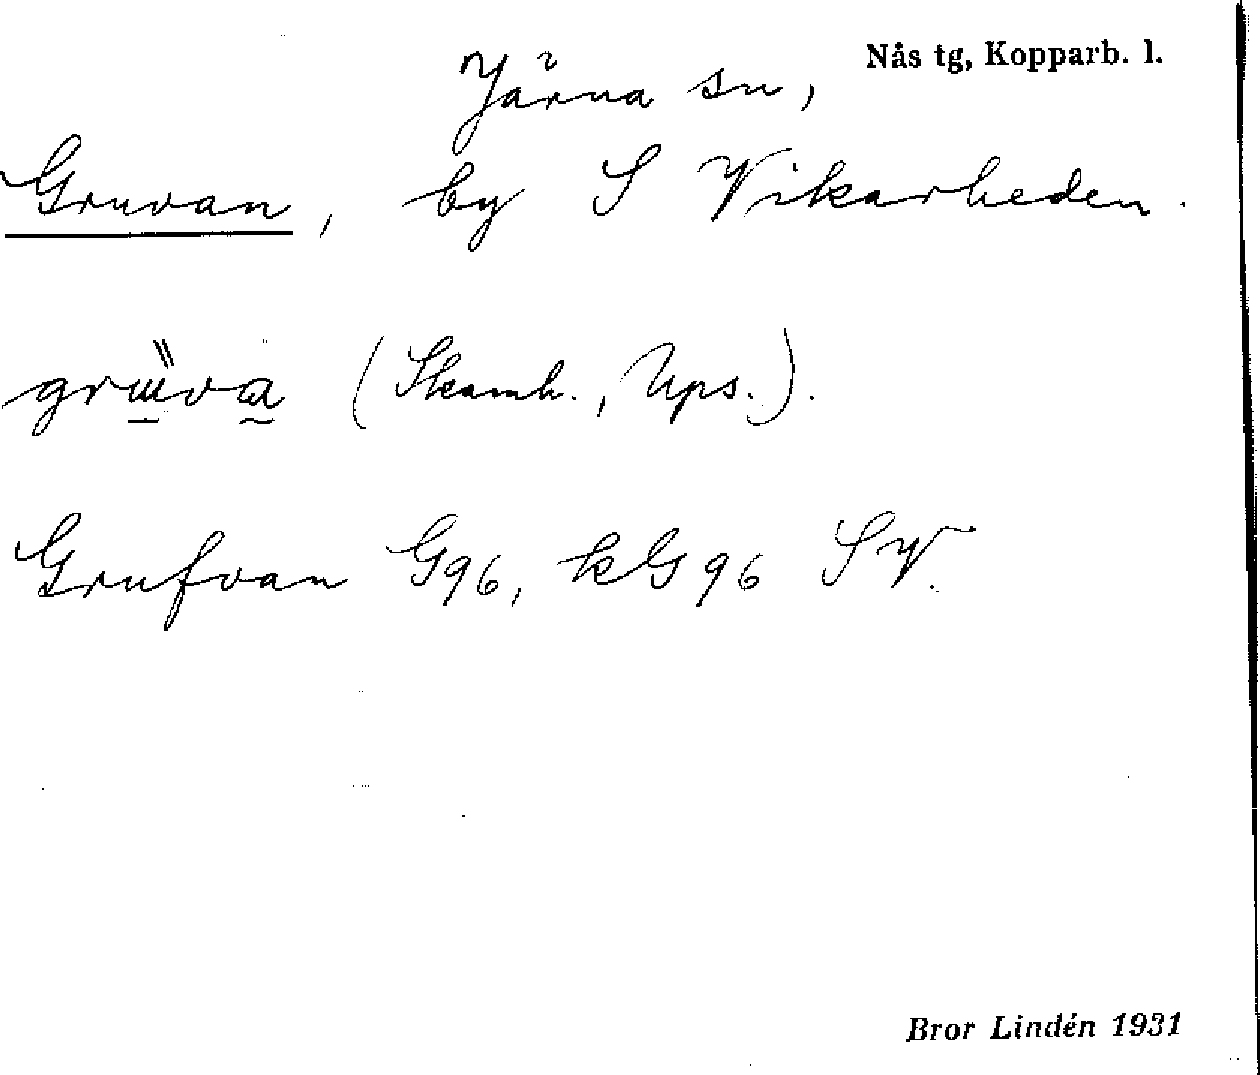 Nås tg, Kopparb. l.
Järna sn,
Gruvan, by S Vikarheden.
grüva (Skamh., Ups.).
Grufvan G96, kG96 SV.
Bror Lindén 1931